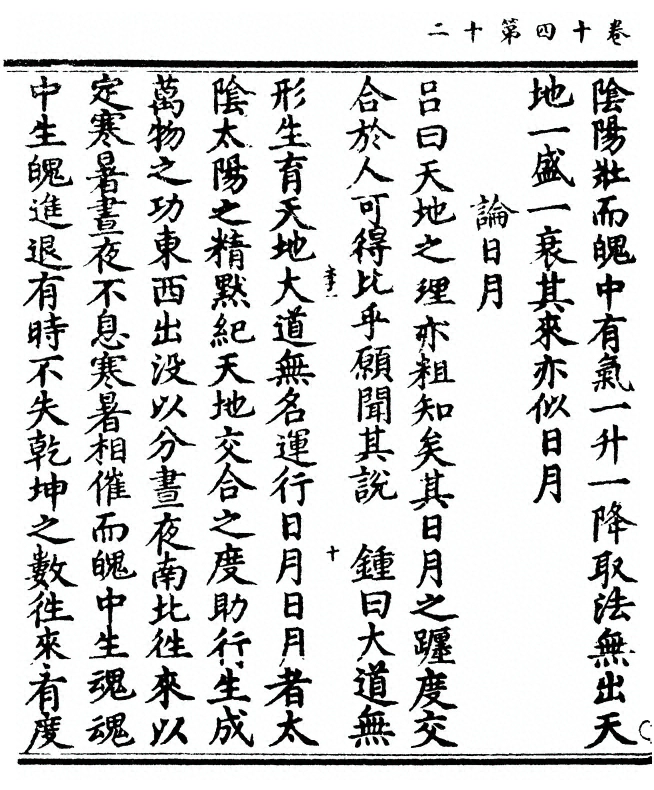 卷十四第十二
陰陽壯而魄中有氣一升一降取法無出天
地一盛一衰其來亦似日月
論日月
呂曰天地之理亦粗知矣其日月之躔度交
合於人可得比乎願聞其說　鍾曰大道無
十
形生育天地大道無名運行日月日月者太
陰太陽之精黙紀天地交合之度助行生成
萬物之功東西出没以分晝夜南北徃來以
定寒暑晝夜不息寒暑相催而魄中生魂魂
中生魄進退有時不失乾坤之數徃來有度